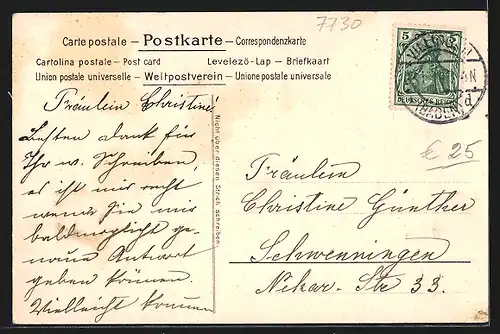 7730
Carte postale – Postkarte – Correspondenzkarte
Cartolina postale – Post card Levelezö-Lap – Briefkaart
Union postale universelle – Weltpostverein – Unione postale universale
5 5
DEUTSCHES REICH
VILLINGEN
(BADEN)
d
€ 25
Fräulein Christine!
Besten Dank für
Ihr w. Schreiben,
es ist mir recht
wenn Sie mir
baldmöglichst ge-
naue Antwort
geben können.
Vielleicht kommen
Nicht über diesen Strich schreiben.
Fräulein
Christine Günther
Schwenningen
Nekar-Str 33.